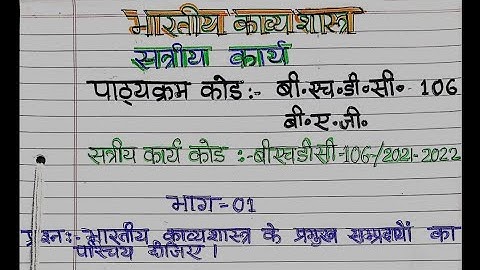 भारतीय काव्यशास्त्र
सत्रीय कार्य
पाठ्यक्रम कोड :- बी.एच.डी.सी.- 106
बी.ए.जी.
सत्रीय कार्य कोड :-बीएचडीसी-106-/2021-2022
भाग-01
प्रश्न:- भारतीय काव्यशास्त्र के प्रमुख सम्प्रदायों का
परिचय दीजिए।